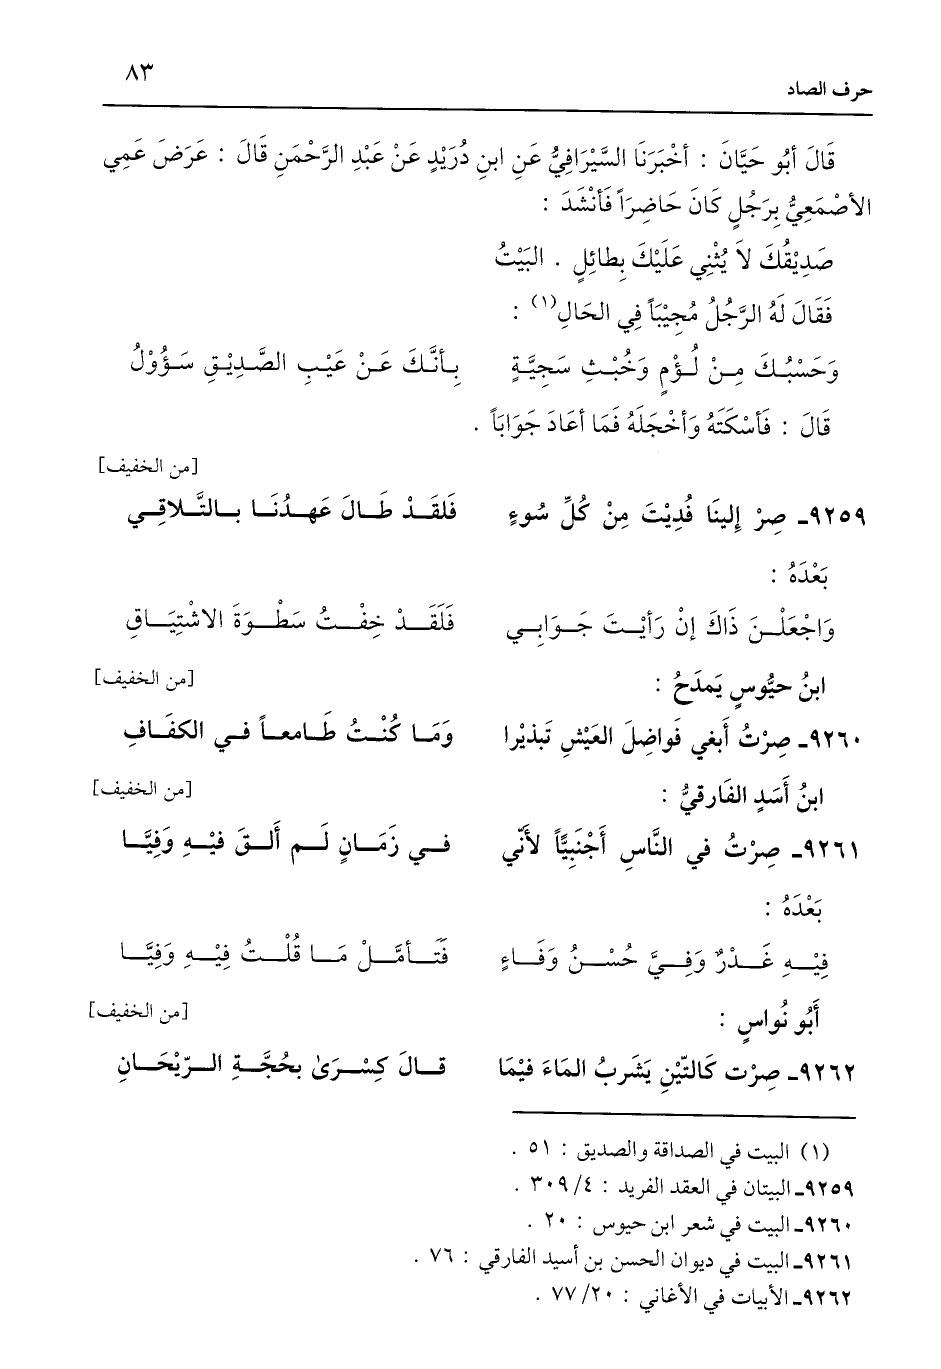 حرف الصاد ٨٣
قَالَ أبُو حَيَّانَ : أخْبَرَنَا السَّيْرَافِيُّ عَنِ ابنِ دُرَيْدٍ عَنْ عَبْدِ الرَّحْمَنِ قَالَ : عَرَضَ عَمِي
الأصْمَعِيُّ بِرَجُلٍ كَانَ حَاضِرَاً فَأنْشَدَ :
صَدِيْقُكَ لاَ يُثْنِي عَلَيْكَ بِطائِلٍ . البَيْتُ
فَقَالَ لَهُ الرَّجُلُ مُجِيْبَاً فِي الحَالِ(١) :
وَحَسْبُكَ مِنْ لُؤْمٍ وَخُبْثِ سَجِيَّةٍ بِأنَّكَ عَنْ عَيْبِ الصَّدِيْقِ سَؤُوْلُ
قَالَ : فَأسْكَتَهُ وَأخْجَلَهُ فَمَا أعَادَ جَوَابَاً .
[من الخفيف]
٩٢٥٩ـ صِرْ إلينَا فُدِيْتَ مِنْ كُلِّ سُوءٍ فَلقَدْ طَالَ عَهدُنَا بالتَّلاقِي
بَعْدَهُ :
وَاجْعَلْنَ ذَاكَ إنْ رَأيْتَ جَوَابِي فَلَقَدْ خِفْتُ سَطْوَةَ الاشْتِيَاقِ
ابنُ حيُّوسٍ يَمدَحُ : [من الخفيف]
٩٢٦٠ـ صِرْتُ أبغي فَواضِلَ العَيْشِ تَبذيرا وَمَا كُنْتُ طَامعاً في الكفَافِ
ابنُ أسَدٍ الفَارقيُّ : [من الخفيف]
٩٢٦١ـ صِرْتُ في النَّاسِ أَجْنَبِيَّاً لأنّي في زَمَانٍ لَم أَلقَ فيْهِ وَفِيَّا
بَعْدَهُ :
فِيْهِ غَدْرٌ وَفِيَّ حُسْنُ وَفَاءٍ فَتَأمَّلْ مَا قُلْتُ فِيْهِ وَفِيَّا
أَبُو نُواسٍ : [من الخفيف]
٩٢٦٢ـ صِرْت كَالتّيْنِ يَشَربُ المَاءَ فيْمَا قالَ كِسْرَىٰ بحُجَّةِ الرّيْحَانِ
(١) البيت في الصداقة والصديق : ٥١ .
٩٢٥٩ـ البيتان في العقد الفريد : ٤/ ٣٠٩ .
٩٢٦٠ـ البيت في شعر ابن حيوس : ٢٠ .
٩٢٦١ـ البيت في ديوان الحسن بن أسيد الفارقي : ٧٦ .
٩٢٦٢ـ الأبيات في الأغاني : ٢٠/ ٧٧ .